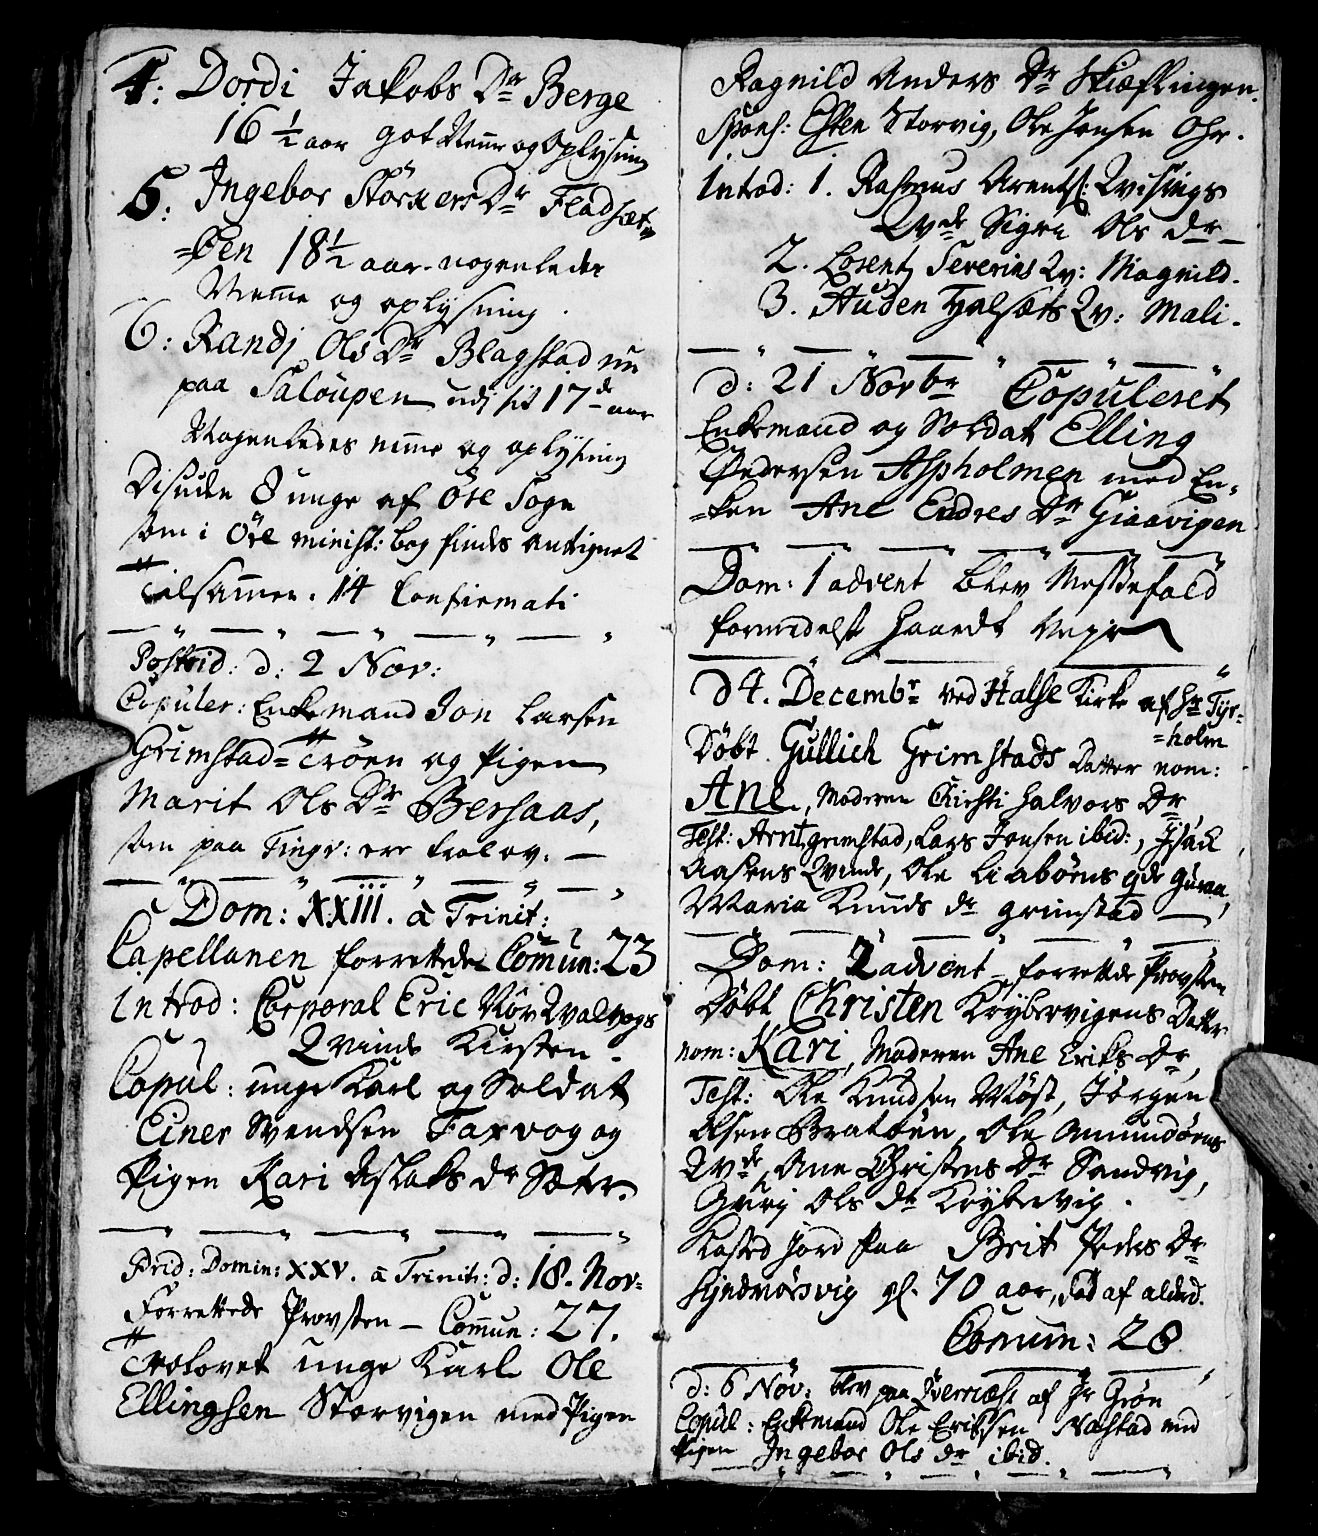 4: Dordi Jakobs Dr Berge
16 1/2 aar got Neme og Oplysning
5: Ingebor StörkersDr Fladsæt-
=Öen 18 1/2 aar. nogenledes
Nemme og oplysning.
6: Randj Ols Dr Blagstad nu
paa Saloupen udj sit 17de aar
Nogenledes neme og oplysning
Disude 8 unge af Öre Sogn
som i Öre minist: bog findes antignet
Tilsamen. 14 Confirmati
Postrid: d: 2 Nov:
Copuler: Enkemand Jon Larsen
Grimstad=Tröen og Pigen
Marit Ols Dr Bersaas,
som paa Tingv: ere trolov. —
Dom: XXIII. à Trinit:
Capellanen forrettede Comun: 23
Introd: Corporal Eric Nör Qvalvogs
Qvinde Kirsten.
Copul: unge Karl og Soldat
Einer Svendsen Faxvog og
Pigen Kari Aslaks dr Sæter.
Prid: Domin: XXV. à Trinit: d: 18. Nov:
Forrettede Provsten — Commun: 27.
Trolovet unge Karl Ole
Ellingsen Storvigen med Pigen
Ragnild Anders Dr Skiæflingen.
Spons: Esten Storvig, Ole Jonsen Ohr.
Introd: 1. Rasmus Arents: Qvisvigs
Qvde Sigri Ols dr —
2. Losent, Severins Qv: Magnild.
3. Auden Halsæts Qv: Mali.
d: 21 Novbr Copuleret
Enkemand og Soldat Elling
Pedersen Aspholmen med En-
=ken Ane Endres Dr Giaavigen
Dom: 1 advent blev Messefald
formedelst haardt Vejr
d 4. Decembr ved Halse Kirke af Hr Tyr-
=holm
Döbt Gullich Grimstads Datter nom:
Ane, Moderen Kirsti Halvors Dr
Test: Arnt grimstad, Lars Jonsen ibid:, Isack
Aasens Qvinde, Ole Liabøens gde Guroe,
Maria Knuds dr grimstad —
Dom: 2 advent — forrettede Provsten
Döbt Christen Kröybervigens Datter
nom: Kari, Moderen Ane Eriks Dr,
Test: Ole Knudsen Möst, Jörgen
Olsen Bratöen, Ole Amundöens
Qvde, Ane Christens Dr Sandvig,
Gurj Ols dr Kröybervig.
Kasted Jord paa Brit Peders Dr
Syndmörsvig gl. 70 aar, död af alderd.
Comun: 28
d: 6 Nov: blev paa Qvernæs af Hr Grön
Copul: Enkemand Ole Erikssen Næstad med
Pigen Ingebor Ols dr ibid.